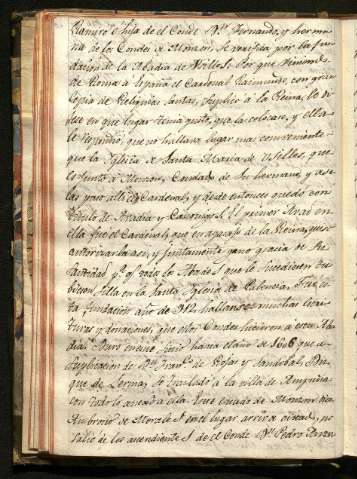 Ramiro è hija de el Conde Dn. Fernando, y herma
na de los Condes de Monzon, se verifica por la fun
dacion de la Abadia de Usillos. Por que viniendo
de Roma à España el Cardenal Raimundo, con gran
Copia de Reliquias Santas, suplicò à la Reina, le di
xese en que lugar tenia gusto, que la colocase, y ella
le respondiò, que no hallava lugar mas conveniente
que la Iglesia de Santa Maria de Usillos, que
es junto à Monzon, Condado de su hermano, y
las parò alli el Cardenal, y desde entonces quedò con
titulo de Abadia y Canonigos. el primer Abad en
ella fue el Cardenal, que en de la Reina, quiso
autorizarla assi, y juntamente ganò gracia de Pre
lacia todos los Abades que lo sucediesen tu
biesen silla en la Santa Iglesia de Palencia. De es
ta fundacion año de hallanse muchas Escri
turas, y donaciones, que estos Condes hicieron à esta Aba
dia. Durò en este sitio hasta el año de 1606 que à
suplicacion de Dn. Franco. de Rojas y Sandobal, Du
que de Lerma, se trasladò à la villa de Ampudia
con todo lo anexo à ella. Este estado de Monzon dice
Ambrosio de Morales en el lugar arriva citado, no
saliò de los ascendientes de el Conde Dn. Pedro Anzu